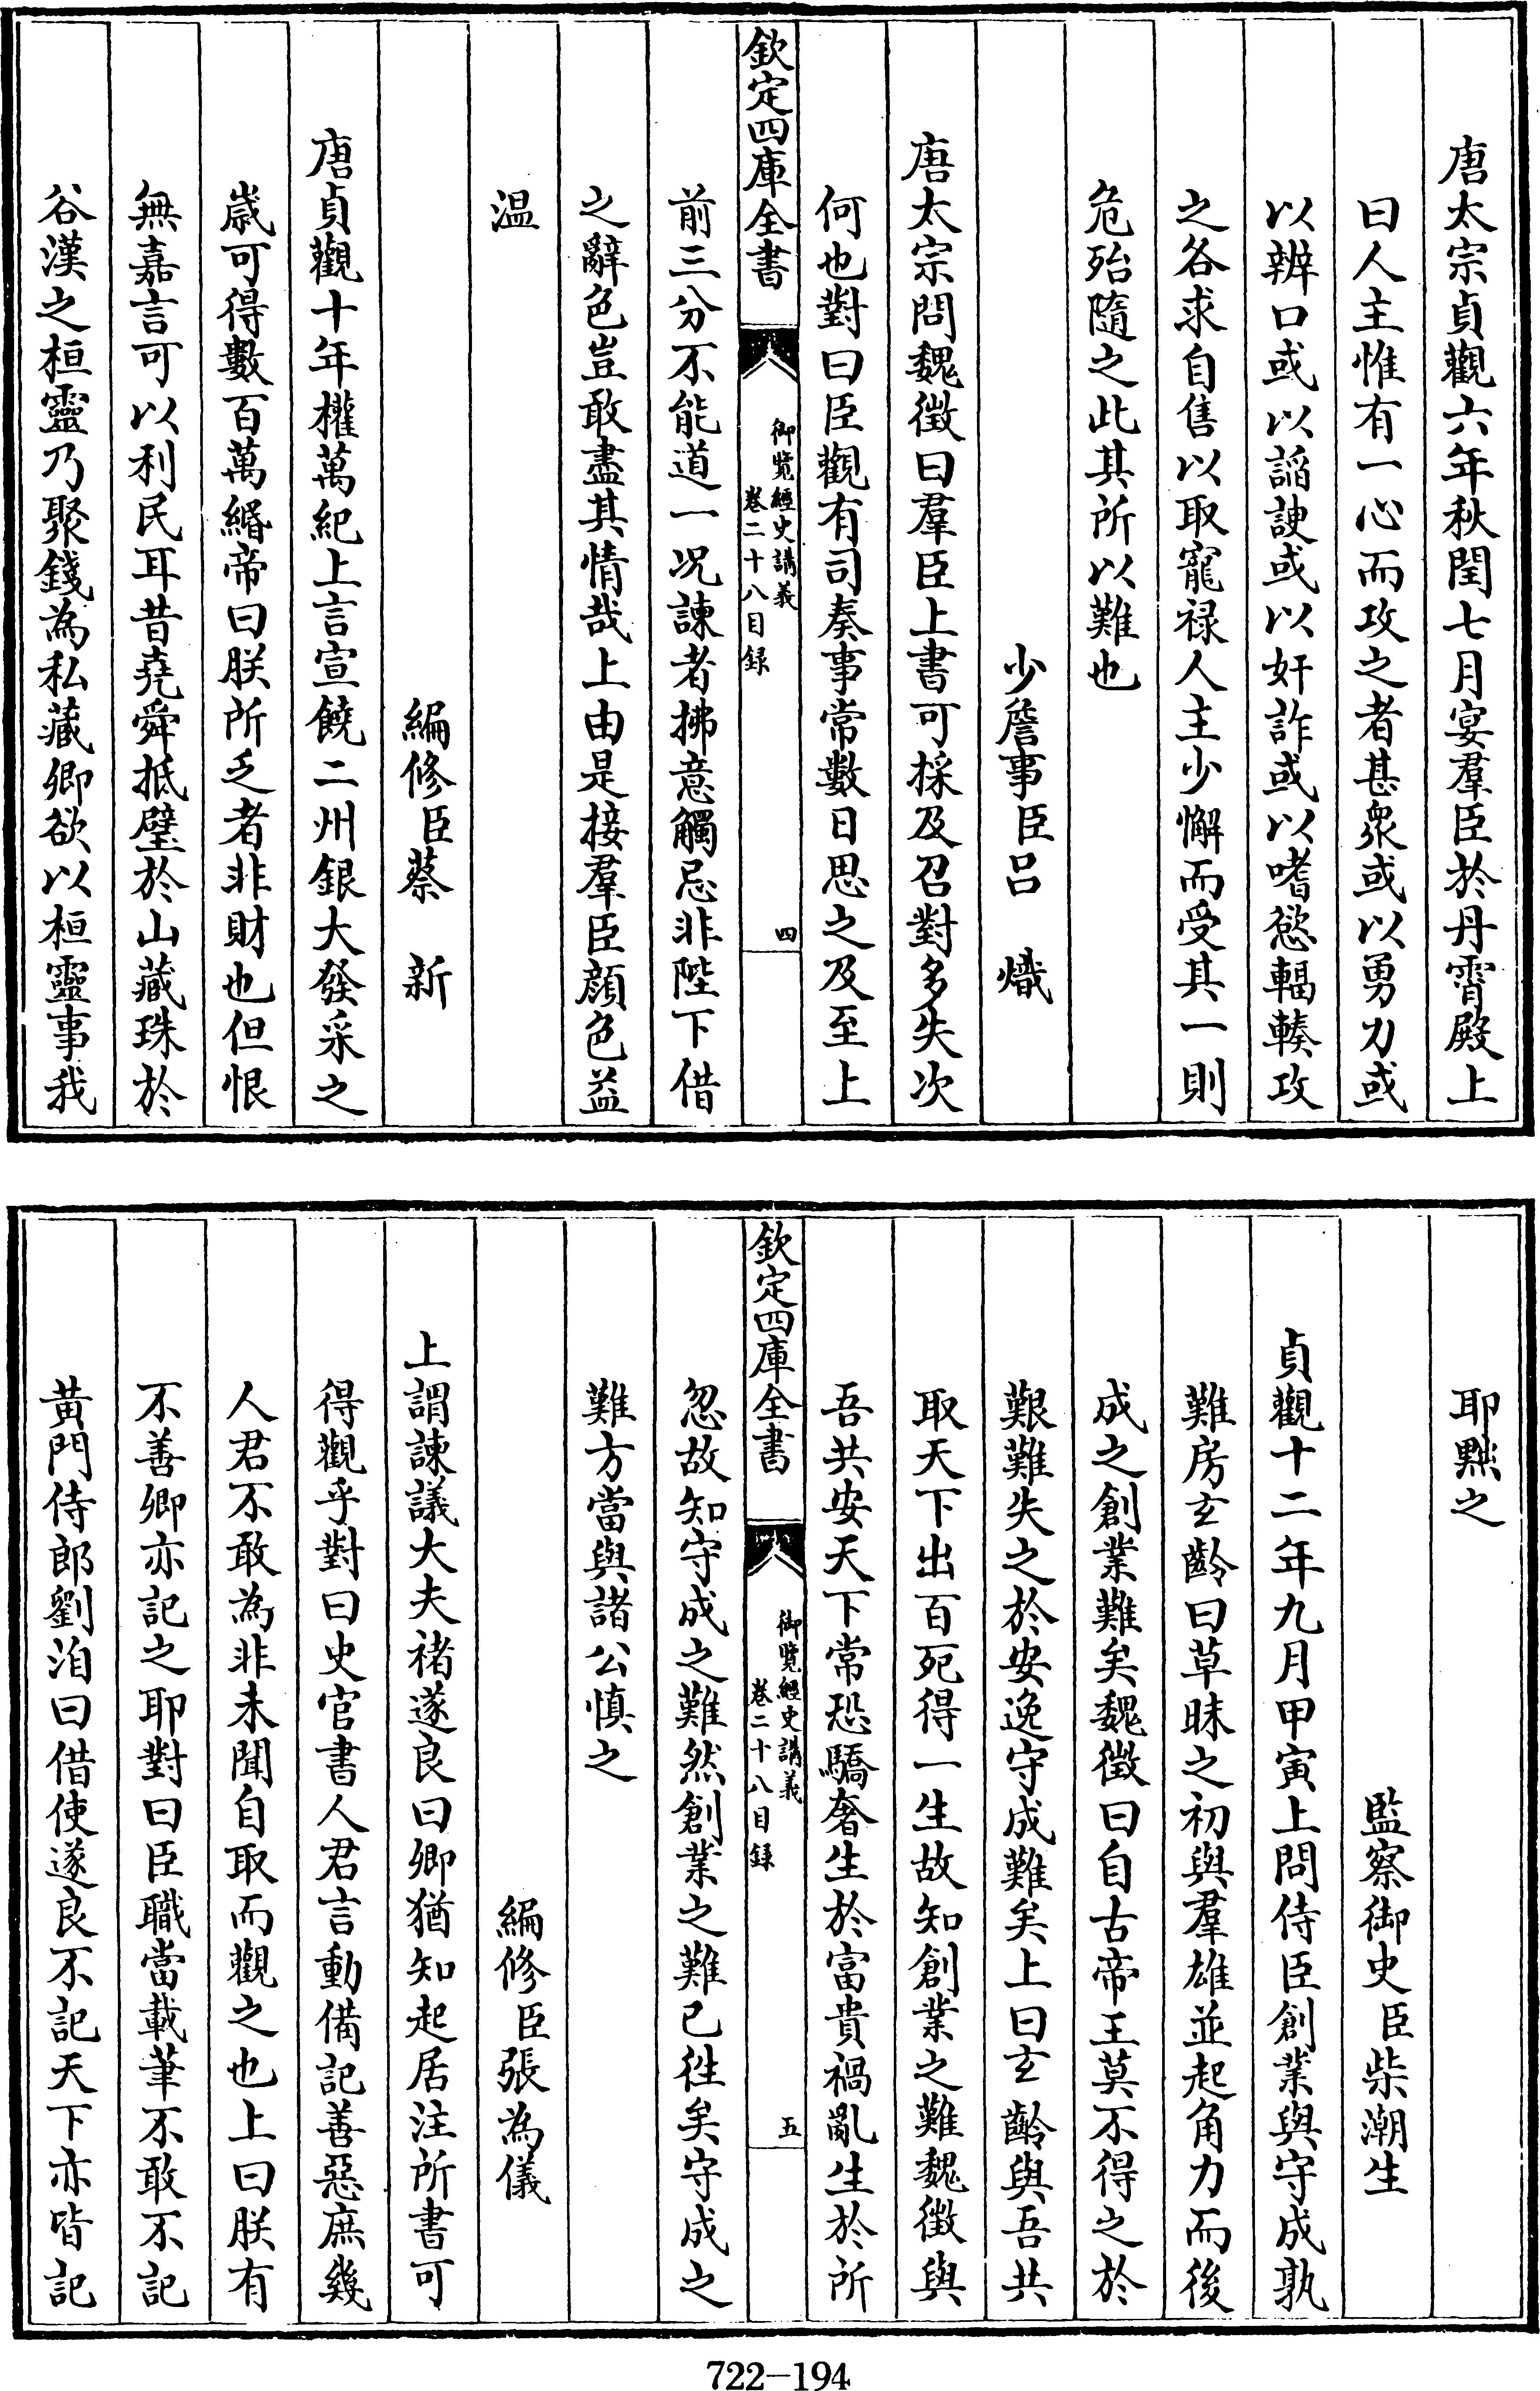 唐太宗貞觀六年秋閏七月宴羣臣於丹霄殿上
曰人主惟有一心而攻之者甚衆或以勇力或
以辨口或以諂諛或以奸詐或以嗜慾輻輳攻
之各求自售以取寵禄人主少懈而受其一則
危殆隨之此其所以難也
少詹事臣呂　熾
唐太宗問魏徵曰羣臣上書可採及召對多失次
何也對曰臣觀有司奏事常數日思之及至上
欽定四庫全書
御覽經史講義
卷二十八目録
四
前三分不能道一况諫者拂意觸忌非陛下借
之辭色豈敢盡其情哉上由是接羣臣顔色益
温
編修臣蔡　新
唐貞觀十年權萬紀上言宣饒二州銀大發采之
歲可得數百萬緡帝曰朕所乏者非財也但恨
無嘉言可以利民耳昔堯舜抵璧於山藏珠於
谷漢之桓靈乃聚錢為私藏卿欲以桓靈事我
耶黜之
監察御史臣柴潮生
貞觀十二年九月甲寅上問侍臣創業與守成孰
難房玄齡曰草昧之初與羣雄並起角力而後
成之創業難矣魏徵曰自古帝王莫不得之於
艱難失之於安逸守成難矣上曰玄齡與吾共
取天下出百死得一生故知創業之難魏徵與
吾共安天下常恐驕奢生於富貴禍亂生於所
欽定四庫全書
御覽經史講義
卷二十八目録
五
忽故知守成之難然創業之難已徃矣守成之
難方當與諸公慎之
編修臣張為儀
上謂諫議大夫禇遂良曰卿猶知起居注所書可
得觀乎對曰史官書人君言動備記善惡庶幾
人君不敢為非未聞自取而觀之也上曰朕有
不善卿亦記之耶對曰臣職當載筆不敢不記
黄門侍郎劉洎曰借使遂良不記天下亦皆記
722-194